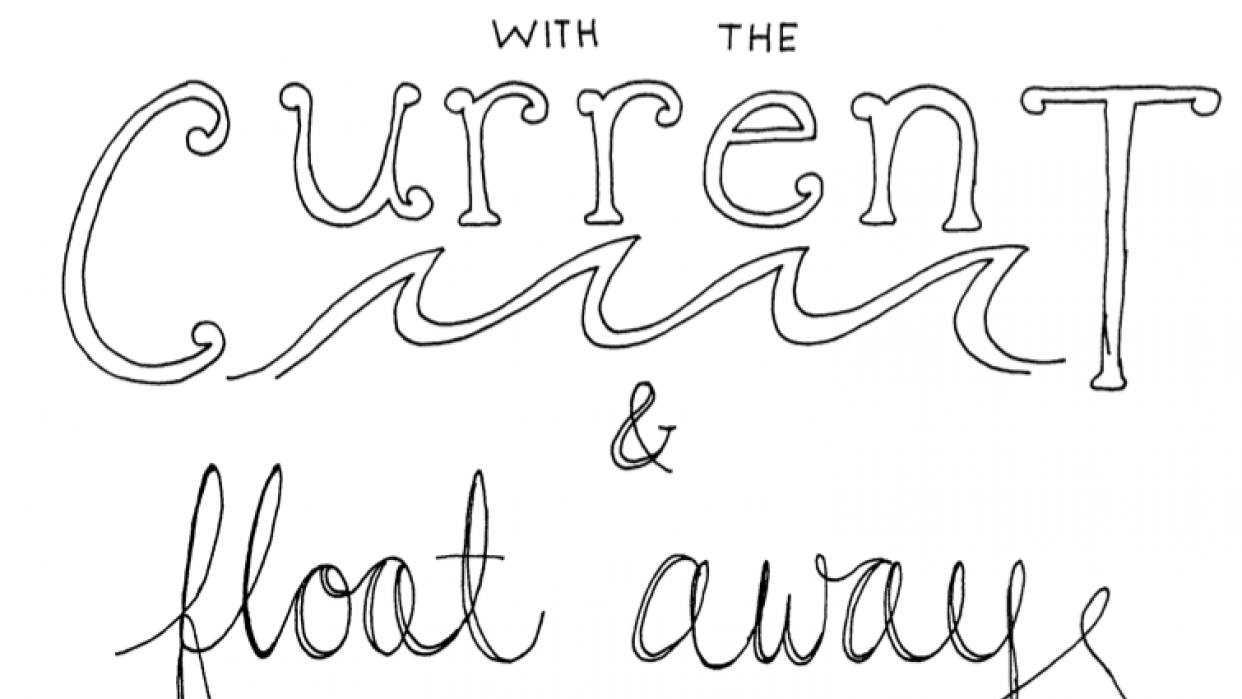 WITH THE
CurrenT
&
float away